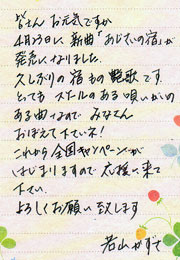 皆さん お元気ですか
4月23日に、新曲「あじさいの宿」が
発売になりました。
久しぶりの宿もの艶歌です
とっても スケールのある唄いがいの
ある曲なので みなさん
おぼえて下さいネ!
これから全国キャンペーンが
はじまりますので 応援に来て
下さい。
よろしくお願い致します
若山かずさ